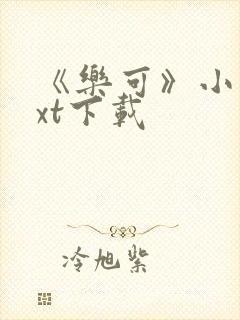 《樂可》小
xt下載
冷旭紫